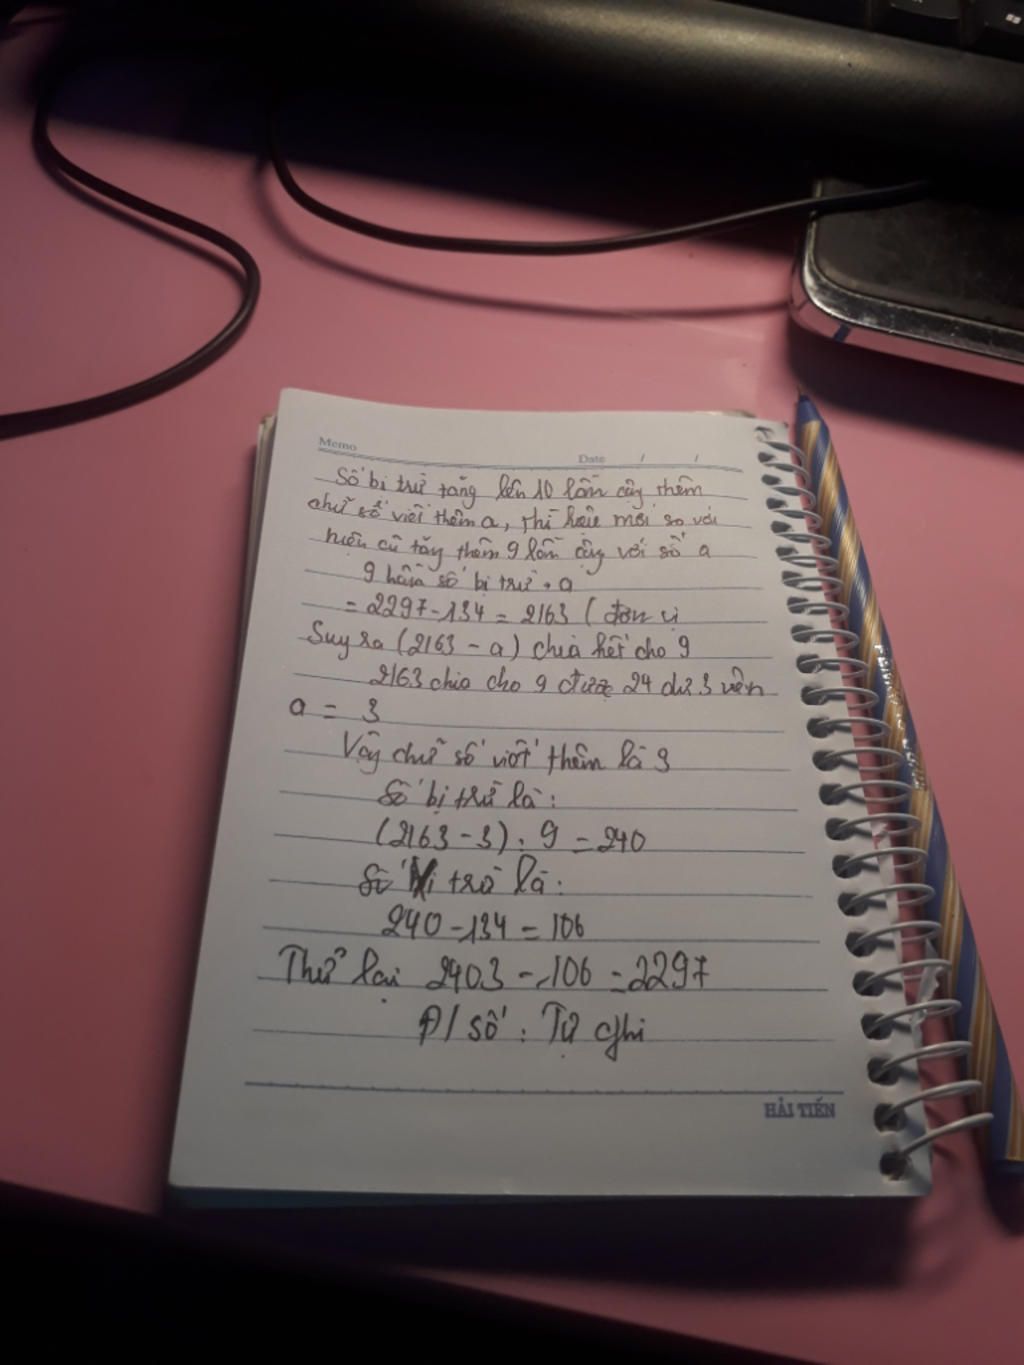 Memo
Date / /
Số bị trừ tăng lên 10 lần cộng thêm
chữ số viết thêm a, thì hiệu mới so với
hiệu cũ tăng thêm 9 lần cộng với số a
9 lần số bị trừ + a
= 2297-134 = 2163 (đơn vị
Suy ra (2163 - a) chia hết cho 9
2163 chia cho 9 được 24 dư 3 nên
a = 3
Vậy chữ số viết thêm là 3
Số bị trừ là:
(2163-3) : 9 = 240
Số trừ là:
240-134 = 106
Thử lại 2403 - 106 = 2297
Đ/số : Tự ghi
HẢI TIẾN